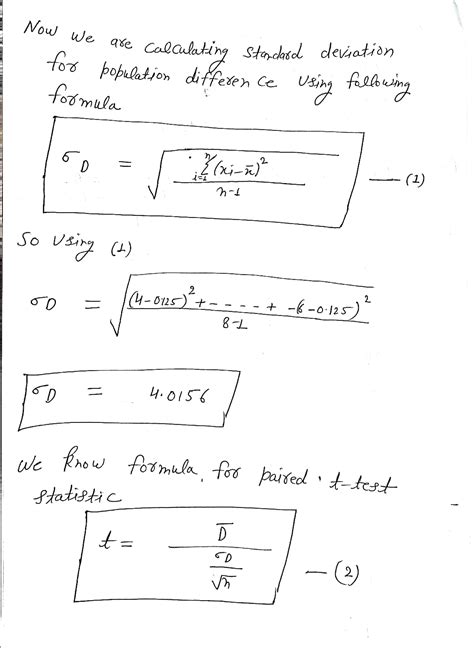 Now we are calculating standard deviation
for population difference using following
formula
σD = √(Σ_{i=1}^{n} (xi-x̄)² / n-1) — (1)
So using (1)
σD = √((4-0125)² + - - - - + -6-0.125)² / 8-1)
σD = 4.0156
We know formula, for paired t-test
statistic
t = D̄ / (σD / √n) — (2)